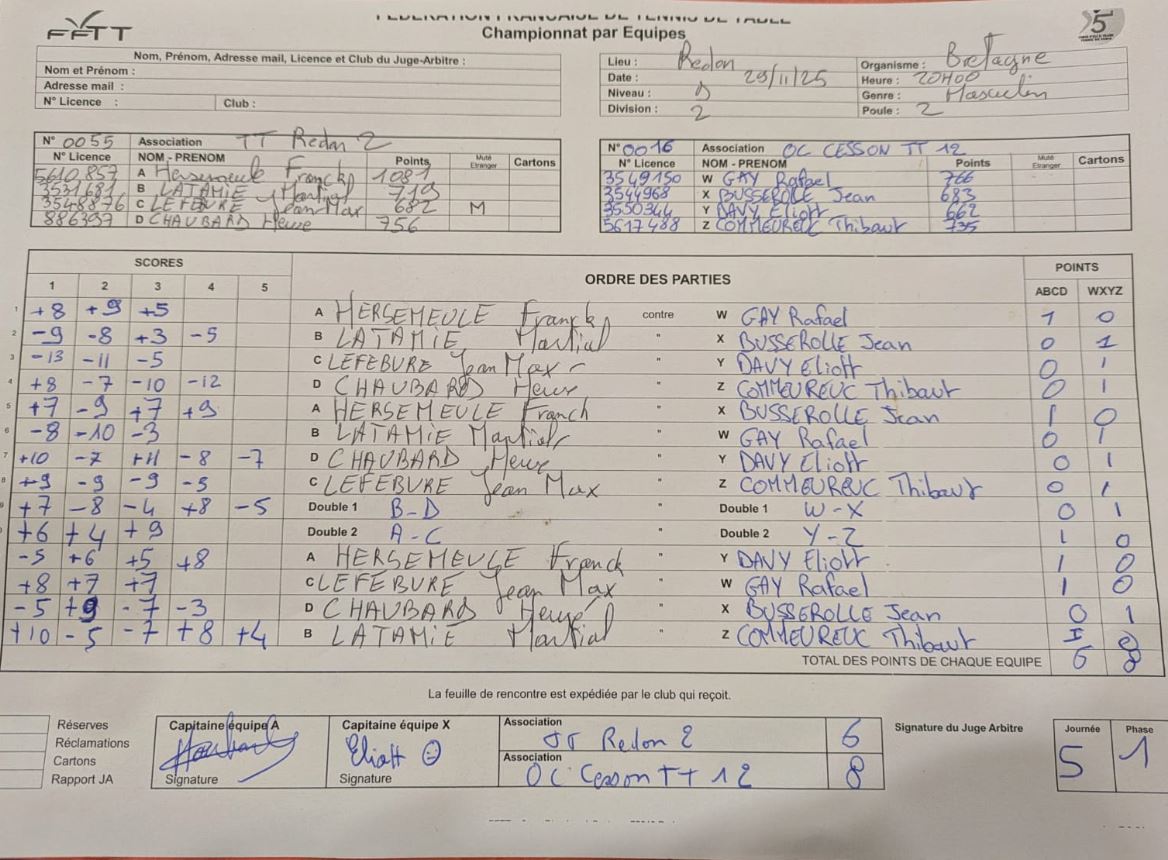 FFTT
FÉDÉRATION FRANÇAISE DE TENNIS DE TABLE
Championnat par Equipes
5
Nom, Prénom, Adresse mail, Licence et Club du Juge-Arbitre :
Nom et Prénom :
Adresse mail :
N° Licence : Club :
Lieu : Redon Organisme : Bretagne
Date : 29/11/25 Heure : 20H00
Niveau : D Genre : Masculin
Division : 2 Poule : 2
N° 0055 Association TT Redon 2
N° Licence NOM - PRENOM Points Muté Etranger Cartons
5610857 A Hersemeule Franck 1081
3531681 B LATAMIE Martial 719
3548876 C LEFEBURE Jean Max 682 M
886397 D CHAUBARD Herve 756
N° 0016 Association OC CESSON TT 12
N° Licence NOM - PRENOM Points Muté Etranger Cartons
3549150 W GAY Rafael 766
3544968 X BUSSEROLLE Jean 683
3550344 Y DAVY Eliott 662
5617488 Z COMMEUREUC Thibaut 735
SCORES ORDRE DES PARTIES POINTS
1 2 3 4 5 ABCD WXYZ
1 +8 +9 +5 A HERSEMEULE Franck contre W GAY Rafael 1 0
2 -9 -8 +3 -5 B LATAMIE Martial " X BUSSEROLLE Jean 0 1
3 -13 -11 -5 C LEFEBURE Jean Max " Y DAVY Eliott 0 1
4 +8 -7 -10 -12 D CHAUBARD Herve " Z COMMEUREUC Thibaut 0 1
5 +7 -9 +7 +9 A HERSEMEULE Franck " X BUSSEROLLE Jean 1 0
6 -8 -10 -3 B LATAMIE Martial " W GAY Rafael 0 1
7 +10 -7 +11 -8 -7 D CHAUBARD Herve " Y DAVY Eliott 0 1
8 +9 -9 -9 -5 C LEFEBURE Jean Max " Z COMMEUREUC Thibaut 0 1
9 +7 -8 -4 +8 -5 Double 1 B-D " Double 1 W-X 0 1
+6 +4 +9 Double 2 A-C " Double 2 Y-Z 1 0
-5 +6 +5 +8 A HERSEMEULE Franck " Y DAVY Eliott 1 0
+8 +7 +7 C LEFEBURE Jean Max " W GAY Rafael 1 0
-5 +9 -7 -3 D CHAUBARD Hervé " X BUSSEROLLE Jean 0 1
+10 -5 -7 +8 +4 B LATAMIE Martial " Z COMMEUREUC Thibaut 1 0
TOTAL DES POINTS DE CHAQUE EQUIPE 6 8
La feuille de rencontre est expédiée par le club qui reçoit.
Réserves
Réclamations
Cartons
Rapport JA
Capitaine équipe A
Signature
Capitaine équipe X
Eliott
Signature
Association TT Redon 2 6
Association OC Cesson TT 12 8
Signature du Juge Arbitre
Journée 5
Phase 1